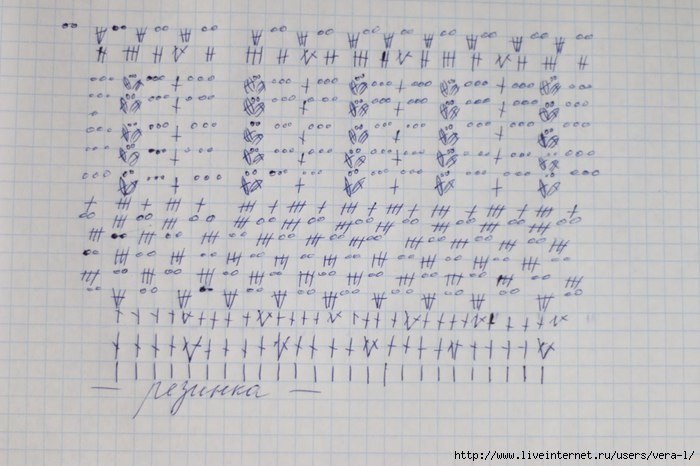 — резинка —
http://www.liveinternet.ru/users/vera-1/